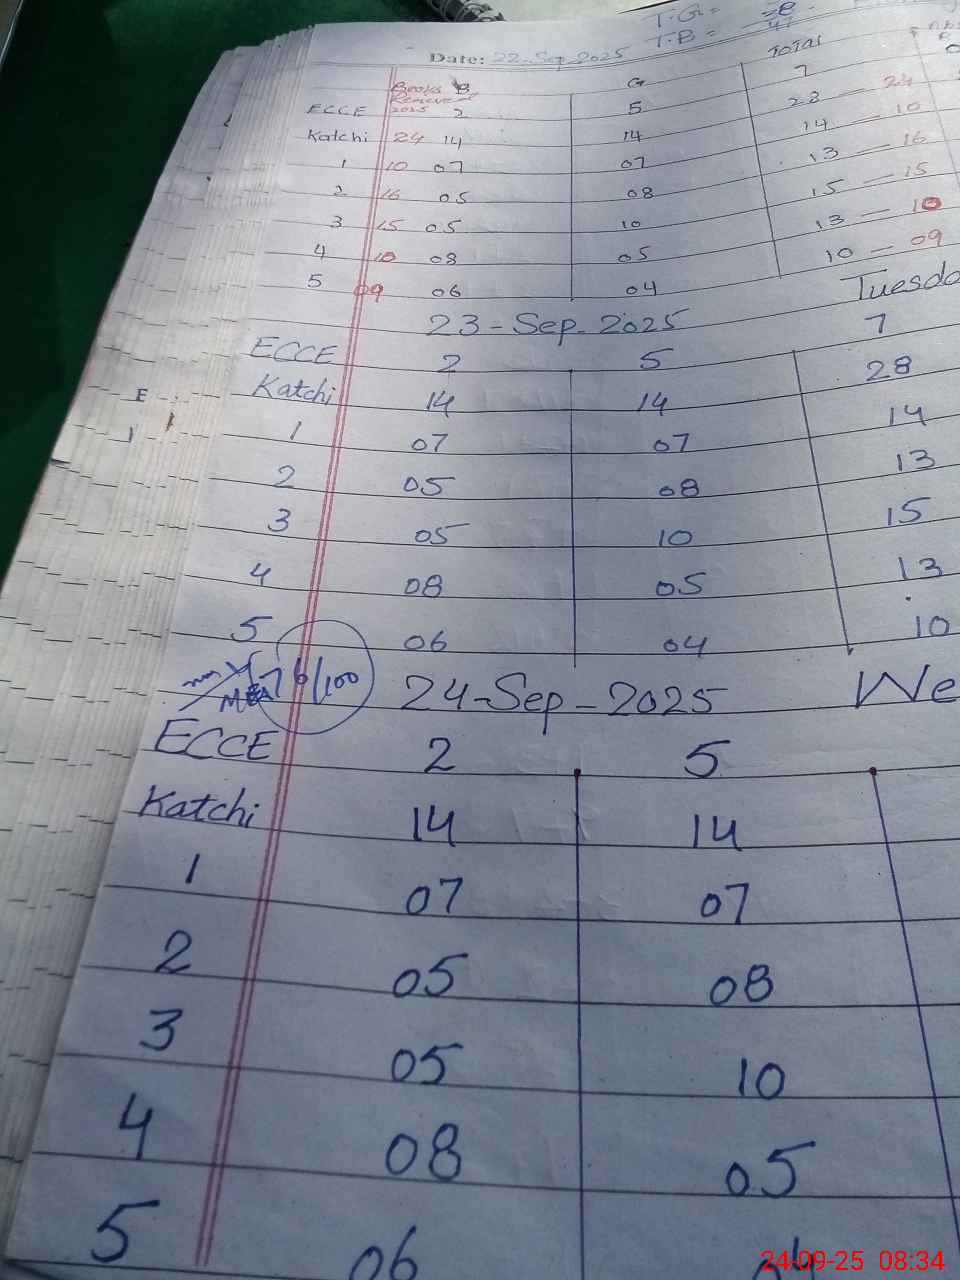 T.G =
T.B =
Date: 22-Sep-2025
TOTAL
Books B G
2025
ECCE 2 5 7
Katchi 24 14 14 28 — 24
1 10 07 07 14 — 10
2 16 05 08 13 — 16
3 15 05 10 15 — 15
4 10 08 05 13 — 10
5 09 06 04 10 — 09
23-Sep-2025 Tuesda
ECCE 2 5 7
Katchi 14 14 28
1 07 07 14
2 05 08 13
3 05 10 15
4 08 05 13
5 06 04 10
76/100
24-Sep-2025 We
ECCE 2 5
Katchi 14 14
1 07 07
2 05 08
3 05 10
4 08 05
5 06
24-09-25 08:34